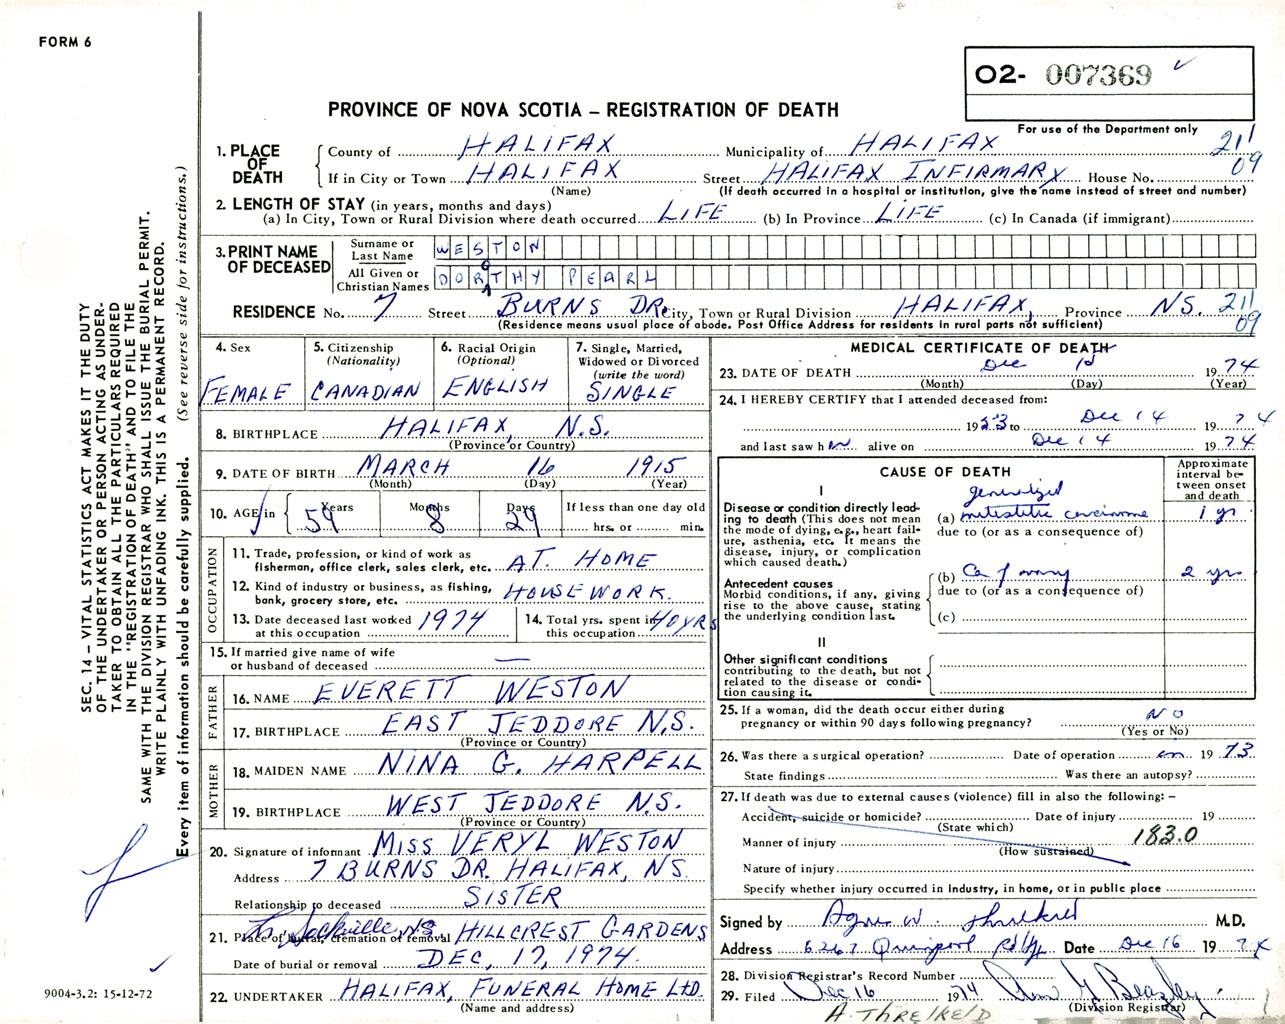 FORM 6
O2- 007369
PROVINCE OF NOVA SCOTIA – REGISTRATION OF DEATH
For use of the Department only
1. PLACE OF DEATH
County of HALIFAX Municipality of HALIFAX 211
If in City or Town HALIFAX Street HALIFAX INFIRMARY House No. 09
(Name) (If death occurred in a hospital or institution, give the name instead of street and number)
2. LENGTH OF STAY (in years, months and days)
(a) In City, Town or Rural Division where death occurred LIFE (b) In Province LIFE (c) In Canada (if immigrant)
3. PRINT NAME OF DECEASED
Surname or Last Name WESTON
All Given or Christian Names DOROTHY PEARL
RESIDENCE No. 7 Street BURNS DR. City, Town or Rural Division HALIFAX, Province NS. 211 09
(Residence means usual place of abode. Post Office Address for residents in rural parts not sufficient)
4. Sex
FEMALE
5. Citizenship
(Nationality)
CANADIAN
6. Racial Origin
(Optional)
ENGLISH
7. Single, Married,
Widowed or Divorced
(write the word)
SINGLE
8. BIRTHPLACE HALIFAX, N.S.
(Province or Country)
9. DATE OF BIRTH MARCH 16 1915
(Month) (Day) (Year)
10. AGE in Years 59 Months 8 Days 29
If less than one day old
hrs. or min.
OCCUPATION
11. Trade, profession, or kind of work as
fisherman, office clerk, sales clerk, etc. AT HOME
12. Kind of industry or business, as fishing,
bank, grocery store, etc. HOUSEWORK.
13. Date deceased last worked
at this occupation 1974
14. Total yrs. spent in
this occupation 40 YRS
15. If married give name of wife
or husband of deceased —
FATHER
16. NAME EVERETT WESTON
17. BIRTHPLACE EAST JEDDORE N.S.
(Province or Country)
MOTHER
18. MAIDEN NAME NINA G. HARPELL
19. BIRTHPLACE WEST JEDDORE N.S.
(Province or Country)
20. Signature of informant MISS VERYL WESTON
Address 7 BURNS DR. HALIFAX, NS.
Relationship to deceased SISTER
21. Place of burial, cremation or removal Sackville NS HILLCREST GARDENS
Date of burial or removal DEC, 17, 1974.
22. UNDERTAKER HALIFAX, FUNERAL HOME LTD.
(Name and address)
MEDICAL CERTIFICATE OF DEATH
23. DATE OF DEATH Dec 1974
(Month) (Day) (Year)
24. I HEREBY CERTIFY that I attended deceased from:
19 to Dec 14 1974
and last saw her alive on Dec 14 1974
CAUSE OF DEATH
Approximate
interval be-
tween onset
and death
I
Disease or condition directly lead-
ing to death (This does not mean
the mode of dying, e.g., heart fail-
ure, asthenia, etc. It means the
disease, injury, or complication
which caused death.)
generalized
(a) metastatic carcinoma 1 yr
due to (or as a consequence of)
Antecedent causes
Morbid conditions, if any, giving
rise to the above cause, stating
the underlying condition last.
(b) Ca of ovary 2 yrs
due to (or as a consequence of)
(c)
II
Other significant conditions
contributing to the death, but not
related to the disease or condi-
tion causing it.
25. If a woman, did the death occur either during
pregnancy or within 90 days following pregnancy? NO
(Yes or No)
26. Was there a surgical operation? Date of operation 1973
State findings Was there an autopsy?
27. If death was due to external causes (violence) fill in also the following: –
Accident, suicide or homicide? Date of injury 19
(State which)
Manner of injury 183.0
(How sustained)
Nature of injury
Specify whether injury occurred in Industry, in home, or in public place
Signed by Agnes W. Threlkeld M.D.
Address 6267 Quinpool Rd Hfx Date Dec 16 1974
28. Division Registrar's Record Number
29. Filed Dec 16 1974
(Division Registrar)
A. THRELKELD
SEC. 14 – VITAL STATISTICS ACT MAKES IT THE DUTY
OF THE UNDERTAKER OR PERSON ACTING AS UNDER-
TAKER TO OBTAIN ALL THE PARTICULARS REQUIRED
IN THE "REGISTRATION OF DEATH" AND TO FILE THE
SAME WITH THE DIVISION REGISTRAR WHO SHALL ISSUE THE BURIAL PERMIT.
WRITE PLAINLY WITH UNFADING INK. THIS IS A PERMANENT RECORD.
Every item of information should be carefully supplied. (See reverse side for instructions.)
9004-3.2: 15-12-72